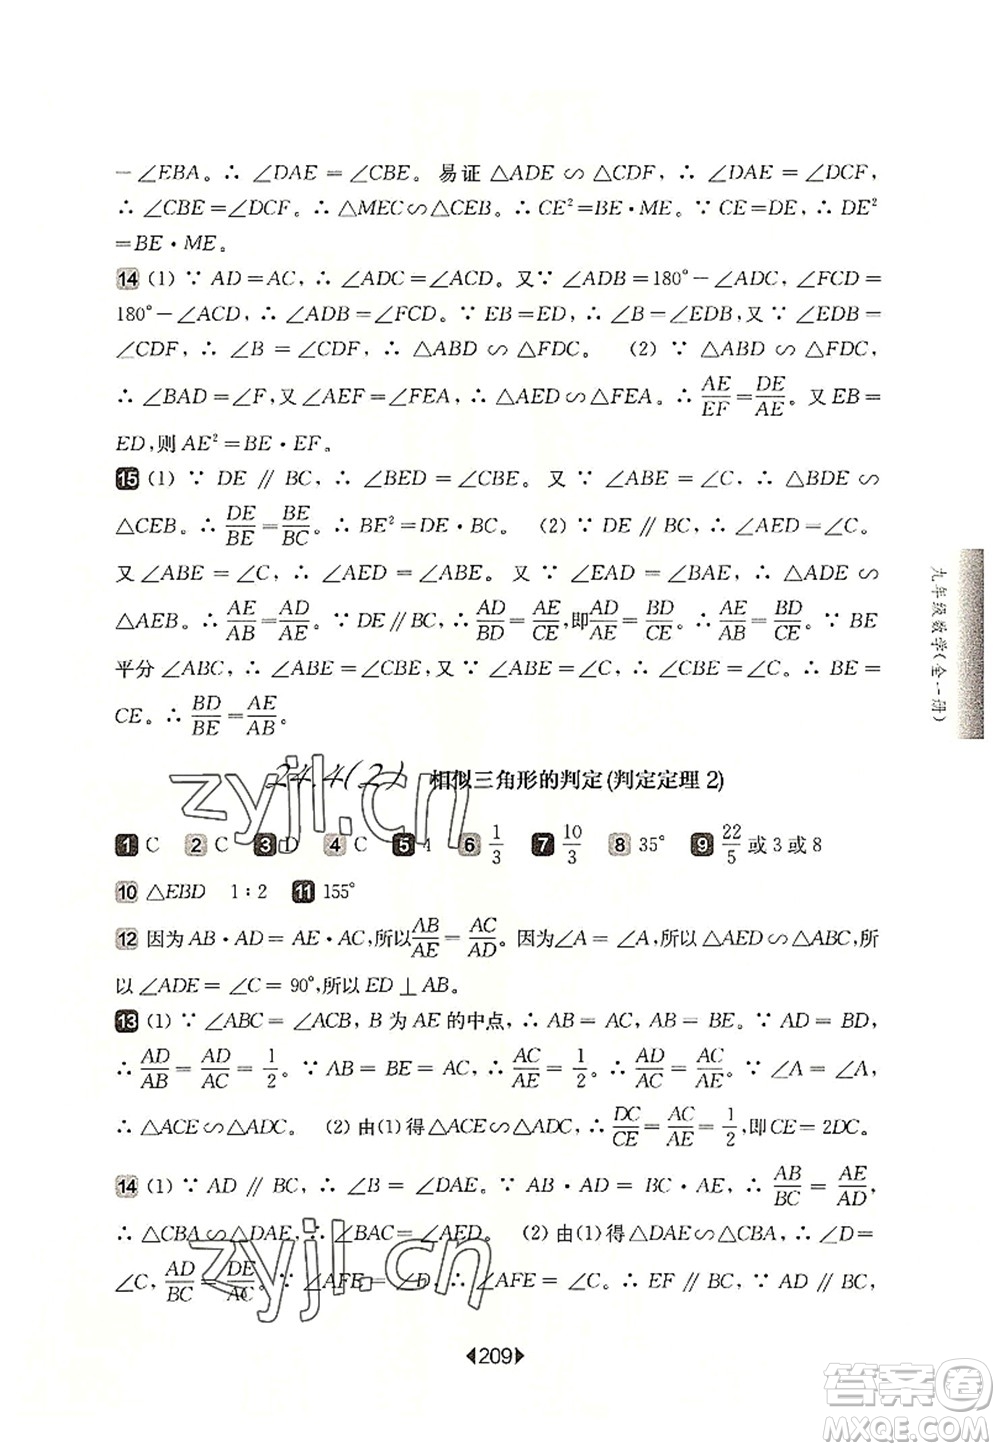 －∠EBA。∴ ∠DAE＝∠CBE。易证 △ADE ∽ △CDF，∴ ∠DAE＝∠DCF，
∴ ∠CBE＝∠DCF。∴ △MEC∽△CEB。∴ CE²＝BE·ME。∵ CE＝DE，∴ DE²
＝BE·ME。
14 (1) ∵ AD＝AC，∴ ∠ADC＝∠ACD。又∵ ∠ADB＝180°－∠ADC，∠FCD＝
180°－∠ACD，∴ ∠ADB＝∠FCD。∵ EB＝ED，∴ ∠B＝∠EDB，又 ∵ ∠EDB＝
∠CDF，∴ ∠B＝∠CDF，∴ △ABD ∽ △FDC。 (2) ∵ △ABD ∽ △FDC，
∴ ∠BAD＝∠F，又 ∠AEF＝∠FEA，∴ △AED∽△FEA。∴ AE/EF＝DE/AE。又 EB＝
ED，则 AE²＝BE·EF。
15 (1) ∵ DE ∥ BC，∴ ∠BED＝∠CBE。又 ∵ ∠ABE＝∠C，∴ △BDE ∽
△CEB。∴ DE/BE＝BE/BC。∴ BE²＝DE·BC。 (2) ∵ DE ∥ BC，∴ ∠AED＝∠C。
又 ∠ABE＝∠C，∴ ∠AED＝∠ABE。又 ∵ ∠EAD＝∠BAE，∴ △ADE ∽
△AEB。∴ AE/AB＝AD/AE。∵ DE∥BC，∴ AD/BD＝AE/CE，即AD/AE＝BD/CE，∴ AE/AB＝BD/CE。∵ BE
平分 ∠ABC，∴ ∠ABE＝∠CBE，又 ∵ ∠ABE＝∠C，∴ ∠CBE＝∠C。∴ BE＝
CE。∴ BD/BE＝AE/AB。
24.4(2) 相似三角形的判定(判定定理 2)
1 C 2 C 3 D 4 C 5 4 6 1/3 7 10/3 8 35° 9 22/5 或 3 或 8
10 △EBD 1∶2 11 155°
12 因为 AB·AD＝AE·AC，所以AB/AE＝AC/AD。因为∠A＝∠A，所以 △AED∽△ABC，所
以 ∠ADE＝∠C＝90°，所以 ED⊥AB。
13 (1) ∵ ∠ABC＝∠ACB，B 为 AE 的中点，∴ AB＝AC，AB＝BE。∵ AD＝BD，
∴ AD/AB＝AD/AC＝1/2。∵ AB＝BE＝AC，∴ AC/AE＝1/2。∴ AD/AC＝AC/AE。∵ ∠A＝∠A，
∴ △ACE∽△ADC。 (2) 由(1)得△ACE∽△ADC，∴ DC/CE＝AC/AE＝1/2，即CE＝2DC。
14 (1) ∵ AD ∥ BC，∴ ∠B＝∠DAE。∵ AB·AD＝BC·AE，∴ AB/BC＝AE/AD，
∴ △CBA∽△DAE，∴ ∠BAC＝∠AED。 (2) 由(1)得△DAE∽△CBA，∴ ∠D＝
∠C，AD/BC＝DE/AC。∵ ∠AFE＝∠D，∴ ∠AFE＝∠C。∴ EF ∥ BC。∵ AD ∥ BC，
209
九年级数学(全一册)
zyjl.cn
zyjl.cn
答案圈
MXQE.COM